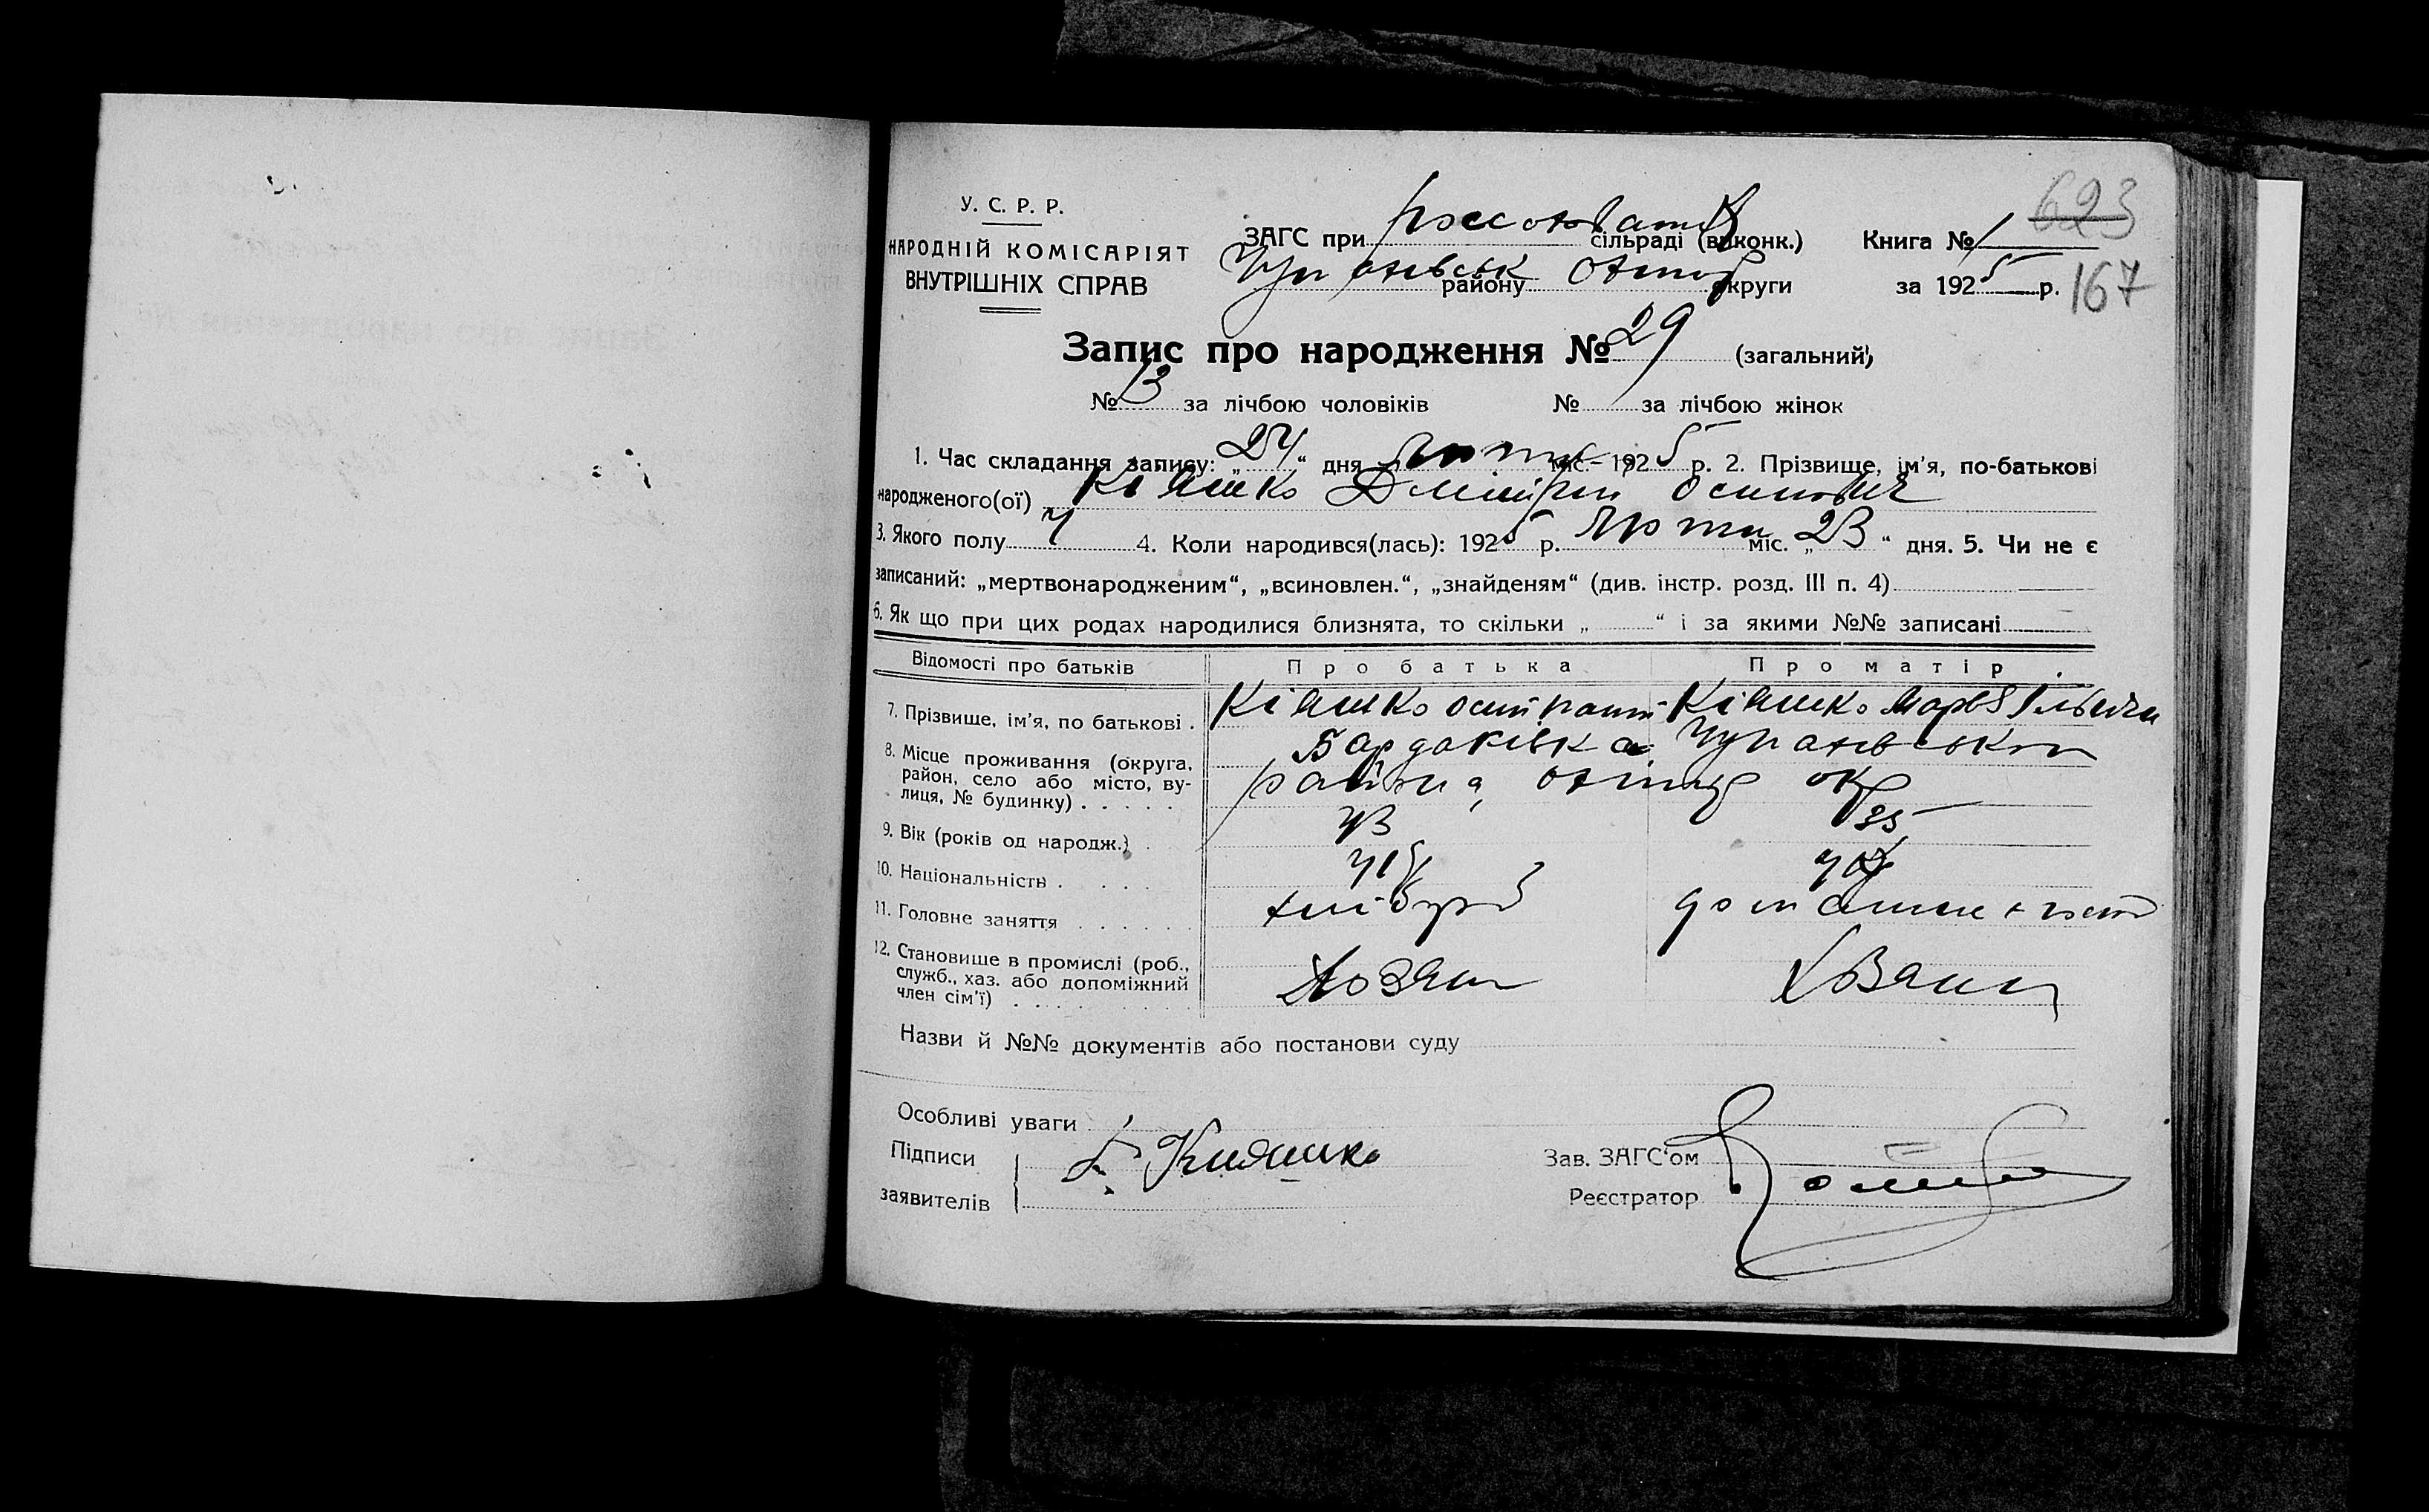 623
У. С. Р. Р.
НАРОДНІЙ КОМІСАРІЯТ
ВНУТРІШНІХ СПРАВ
ЗАГС при сільраді (виконк.)
району округи
Книга № 1
за 1925 р. 167
Запис про народження № 29 (загальний)
№ 13 за лічбою чоловіків № за лічбою жінок
1. Час складання запису: „24“ дня міс. 1925 р. 2. Прізвище, ім’я, по-батькові
народженого(ої) Кіяшко Дмитрий Осипович
3. Якого полу Ч 4. Коли народився(лась): 1925 р. Люти міс. „23“ дня. 5. Чи не є
записаний: „мертвонародженим“, „всиновлен.“, „знайденям“ (див. інстр. розд. III п. 4)
6. Як що при цих родах народилися близнята, то скільки „ “ і за якими №№ записані
Відомості про батьків Про батька Про матір
7. Прізвище, ім’я, по батькові . Кіяшко Кіяшко Марія
8. Місце проживання (округа, район, село або місто, вулиця, № будинку) . . . . . Бардаківка району окр
9. Вік (років од народж.) . 43 35
10. Національність . . . . укр укр
11. Головне заняття . . . . . . хлібороб
12. Становище в промислі (роб., служб., хаз. або допоміжний член сім’ї) . . . . Хозяин
Назви й №№ документів або постанови суду
Особливі уваги
Підписи Кияшко
заявителів
Зав. ЗАГС‘ом
Реєстратор